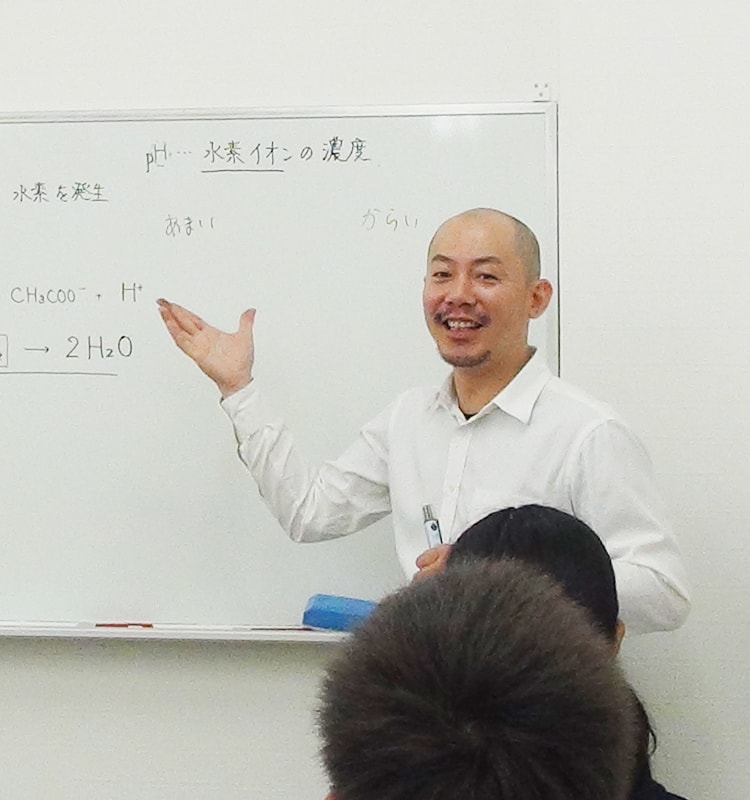 pH… 水素イオンの濃度
水素を発生
あまい からい
CH₃COO⁻ + H⁺
→ 2H₂O